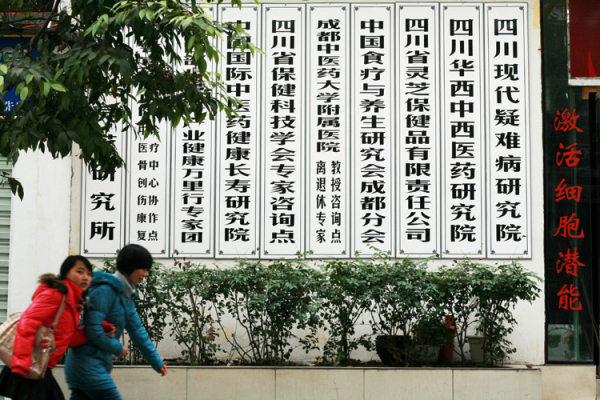 研究所
医骨创伤康复
疗中心协作点
业健康万里行专家团
中国国际中医药健康长寿研究院
四川省保健科技学会专家咨询点
成都中医药大学附属医院
离退休专家
教授咨询点
中国食疗与养生研究会成都分会
四川省灵芝保健品有限责任公司
四川华西中西医药研究院
四川现代疑难病研究院
激活细胞潜能